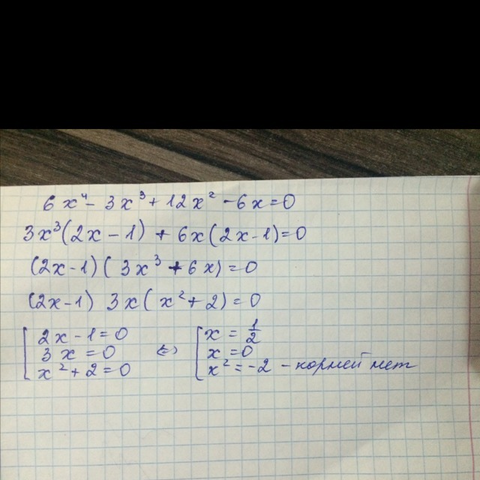 6x⁴ - 3x³ + 12x² - 6x = 0
3x³(2x - 1) + 6x(2x - 1) = 0
(2x - 1)(3x³ + 6x) = 0
(2x - 1) 3x(x² + 2) = 0
[2x - 1 = 0 ⇔ [x = 1/2
3x = 0 x = 0
x² + 2 = 0 x² = -2 - корней нет